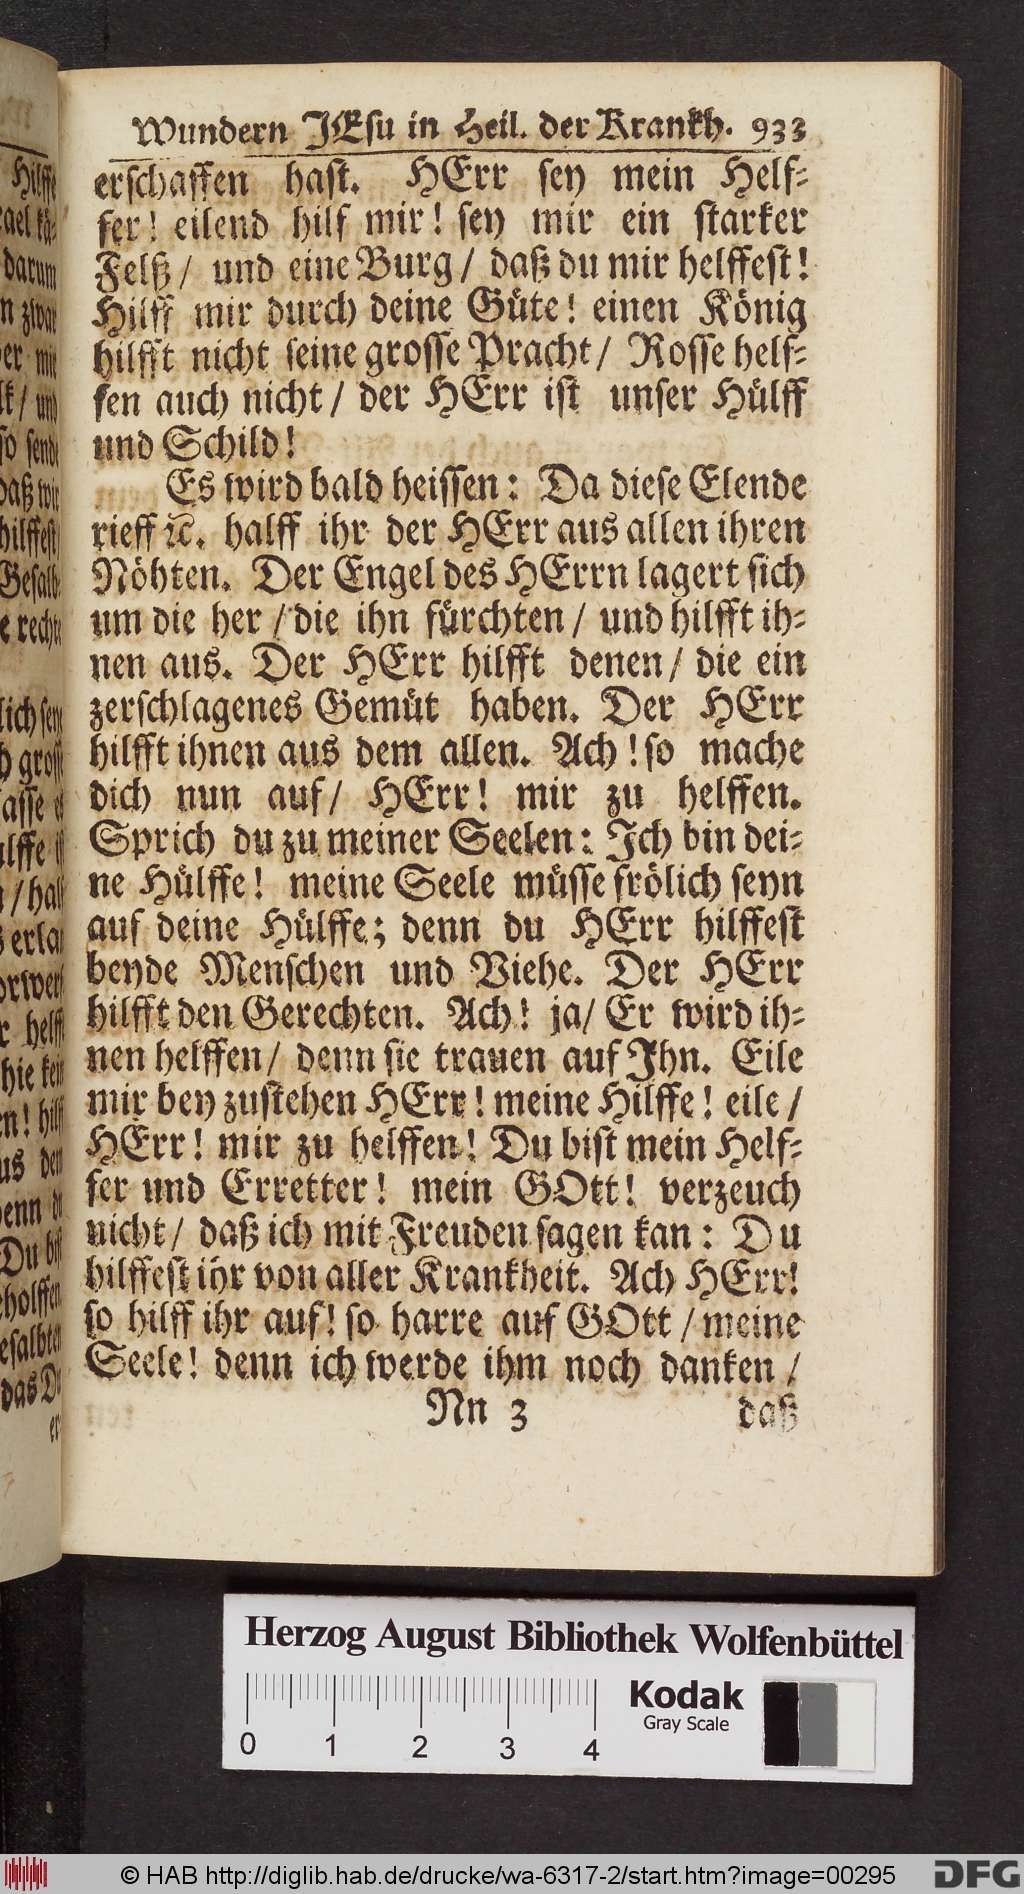 Wundern JEsu in Heil. der Krankh. 933
erschaffen hast. HErr sey mein Helf-
fer! eilend hilf mir! sey mir ein starker
Felß / und eine Burg / daß du mir helffest!
Hilff mir durch deine Güte! einen König
hilfft nicht seine grosse Pracht / Rosse helf-
fen auch nicht / der HErr ist unser Hülff
und Schild!
Es wird bald heissen: Da diese Elende
rieff ꝛc. halff ihr der HErr aus allen ihren
Nöhten. Der Engel des HErrn lagert sich
um die her / die ihn fürchten / und hilfft ih-
nen aus. Der HErr hilfft denen / die ein
zerschlagenes Gemüt haben. Der HErr
hilfft ihnen aus dem allen. Ach! so mache
dich nun auf / HErr! mir zu helffen.
Sprich du zu meiner Seelen: Ich bin dei-
ne Hülffe! meine Seele müsse frölich seyn
auf deine Hülffe; denn du HErr hilffest
beyde Menschen und Viehe. Der HErr
hilfft den Gerechten. Ach! ja / Er wird ih-
nen helffen / denn sie trauen auf Ihn. Eile
mir bey zustehen HErr! meine Hilffe! eile /
HErr! mir zu helffen! Du bist mein Helf-
fer und Erretter! mein GOtt! verzeuch
nicht / daß ich mit Freuden sagen kan: Du
hilffest ihr von aller Krankheit. Ach HErr!
so hilff ihr auf! so harre auf GOtt / meine
Seele! denn ich werde ihm noch danken /
Nn 3 daß
Hilffe
darum
zwar
mir
/ und
so sende
daß wir
hilffest
Gesalb
rechte
Du bist
das Du
er-
Herzog August Bibliothek Wolfenbüttel
0 1 2 3 4
Kodak
Gray Scale
© HAB http://diglib.hab.de/drucke/wa-6317-2/start.htm?image=00295
DFG